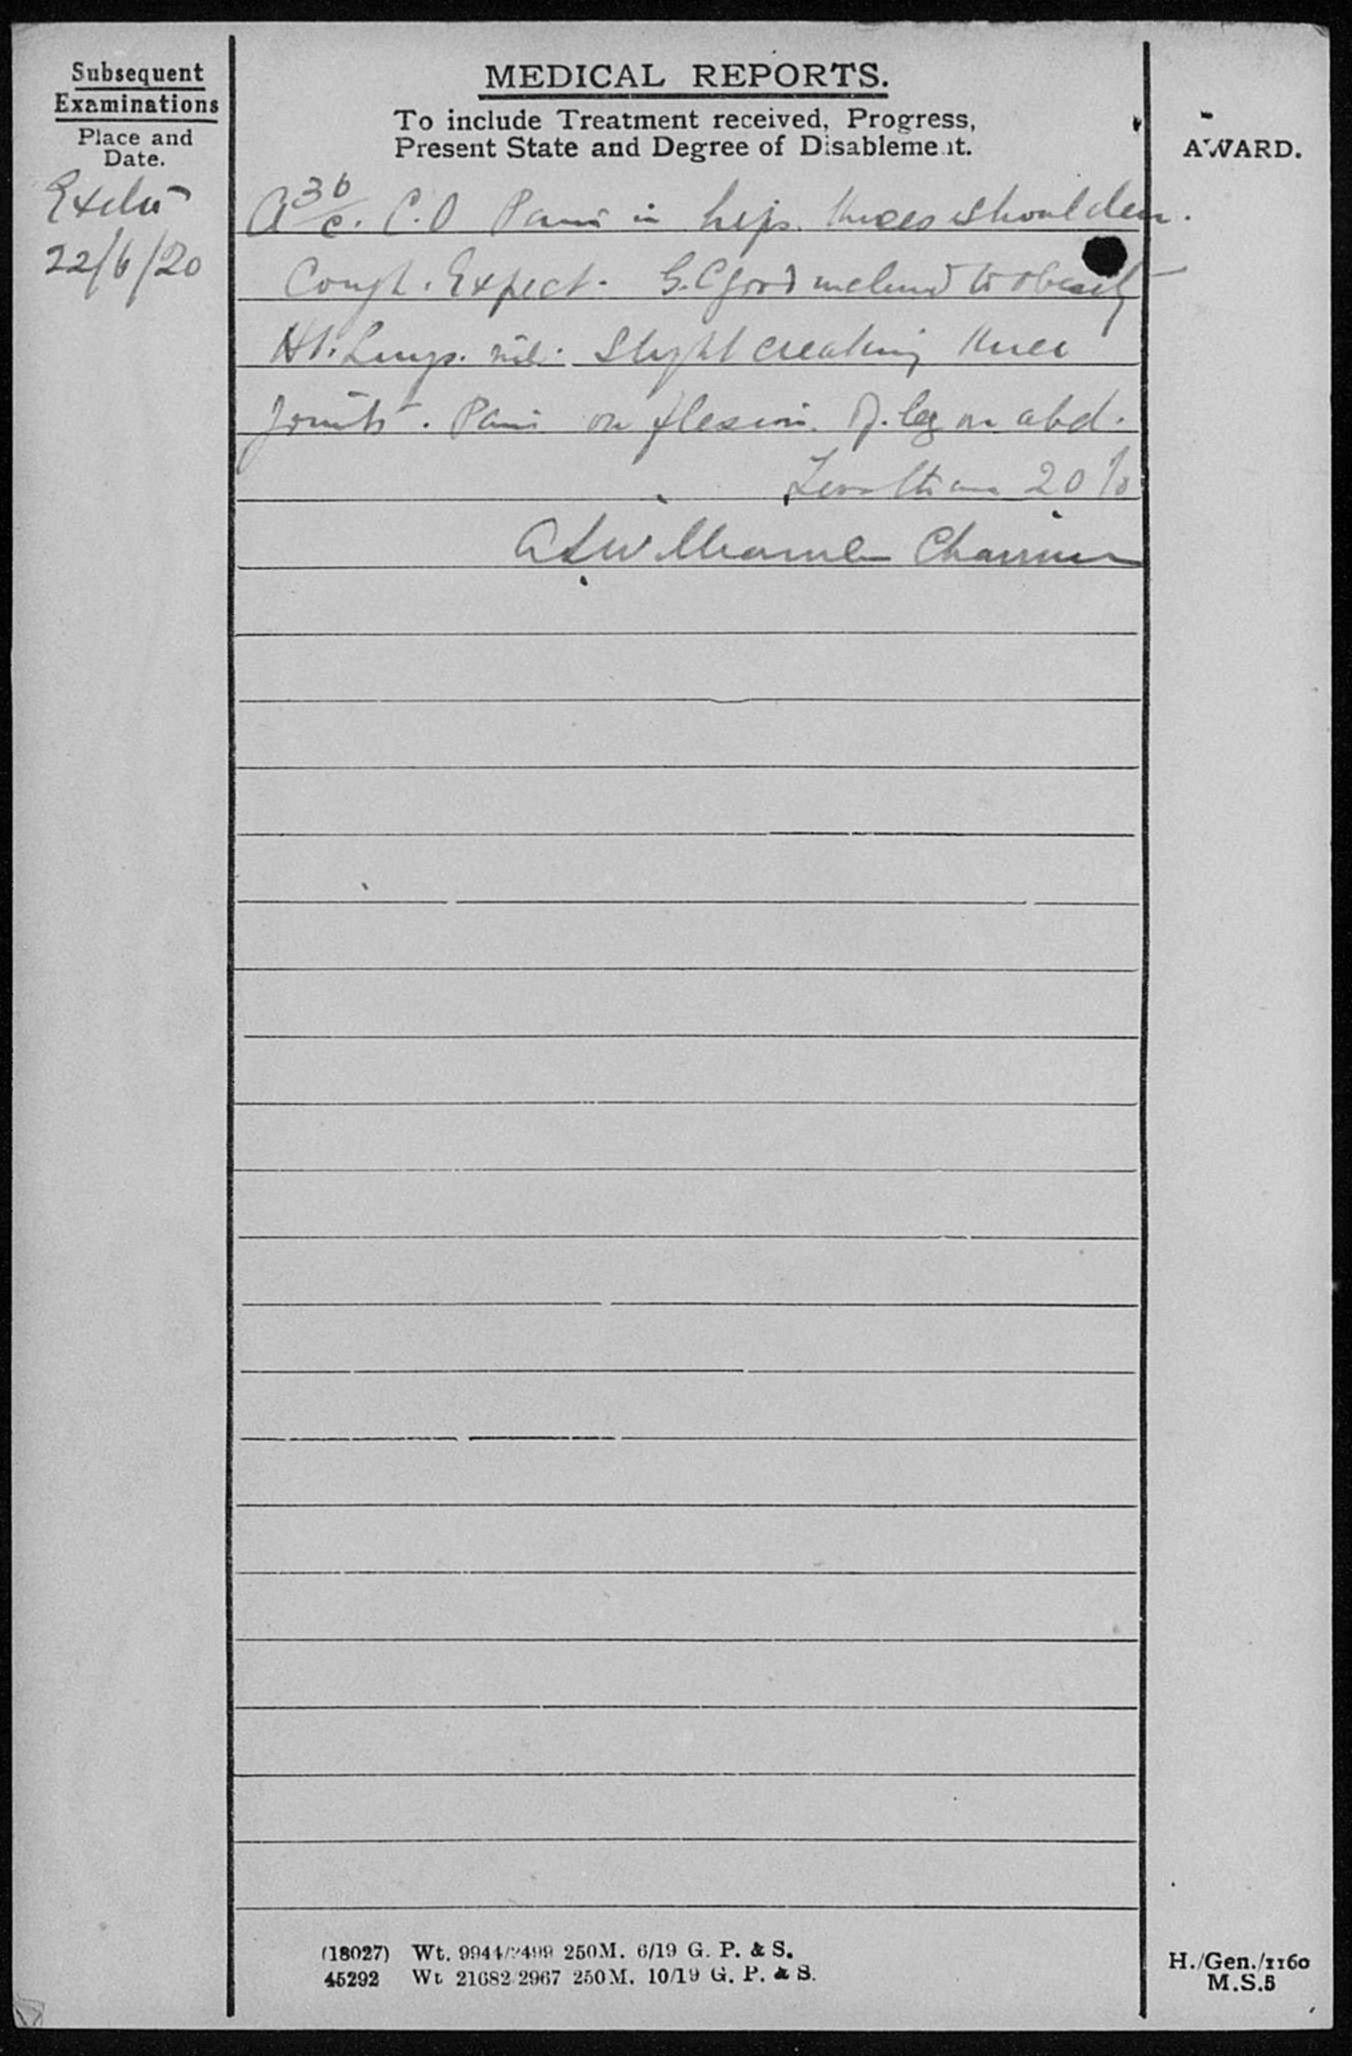 Subsequent
Examinations
Place and
Date.
MEDICAL REPORTS.
To include Treatment received, Progress,
Present State and Degree of Disablement.
AWARD.
Exeter
22/6/20
A 36/c. C.O Pains in hips. Knees & Shoulders.
Cough. Expect. G.C good inclined to obesity
Ht. Lungs. nil. Slight creaking knee
joints. Pain on flexion of leg on abd.
Less than 20%
Chairman
(18027) Wt. 9944/2499 250M. 6/19 G. P. & S.
45292 Wt 21682/2967 250M. 10/19 G. P. & S.
H./Gen./1160
M.S.5